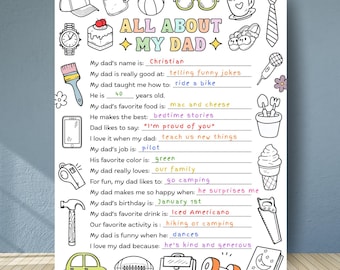 ALL ABOUT
MY DAD
My dad's name is: Christian
My dad is really good at: telling funny jokes
My dad taught me how to: ride a bike
He is 40 years old.
My dad's favorite food is: mac and cheese
He makes the best: bedtime stories
Dad likes to say: "I'm proud of you"
I love it when my dad: teach us new things
My dad's job is: pilot
His favorite color is: green
My dad really loves: our family
For fun, my dad likes to: go camping
My dad makes me so happy when: he surprises me
My dad's birthday is: January 1st
My dad's favorite drink is: Iced Americano
Our favorite activity is: hiking or camping
My dad is funny when he: dances
I love my dad because: he's kind and generous